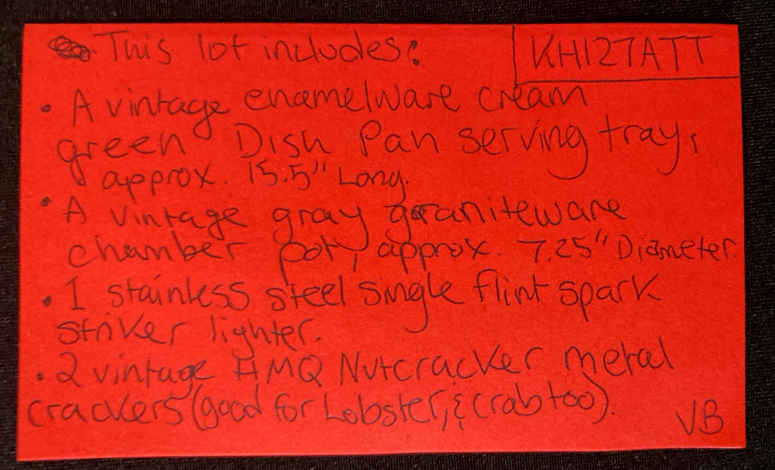 This lot includes:
KH127ATT
• A vintage enamelware cream
green Dish Pan serving tray,
approx. 15.5" Long.
• A vintage gray graniteware
chamber pot, approx. 7.25" Diameter.
• 1 stainless steel single flint spark
striker lighter.
• 2 vintage HMQ Nutcracker metal
crackers (good for Lobster, & crab too).
VB